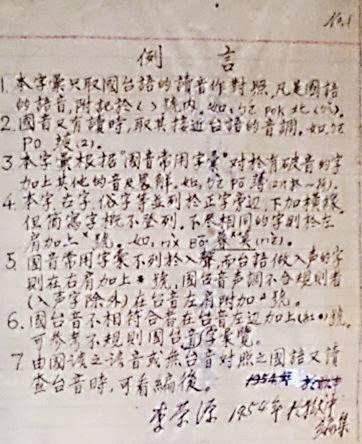 No.1
例言
1. 本字彙只取國台語的讀音作對照,凡是國語
的語音,附記於( )號内.如,ㄅㄛ POK 北(ㄅㄟ).
2. 國音又有讀時,取其接近台語的音調.如,ㄅㄛ
PO
3. 本字彙根据"國音常用字彙"對於有破音的字
加上其他的音及畧解.如,ㄅㄛ PO 薄
4. 本字古字,俗字等並列於正字旁边,下加横線.
但简寫字概不登列.不尽相同的字則於左
肩加上 號.如,
5. 國音常用字彙不列於入聲,而台語做入声的字
則在右肩加上 號,國台音声調不合規則者
(入声字除外)在台音左肩附加 號.
6. 國台音不相符合音在台音左边加上(紅 )號.
可参考不規則國台音字彙覽.
7. 由國語之語音或無台音對照之國語又讀
查台音時,可看編後.
李荣源 1954年於獄中
編集